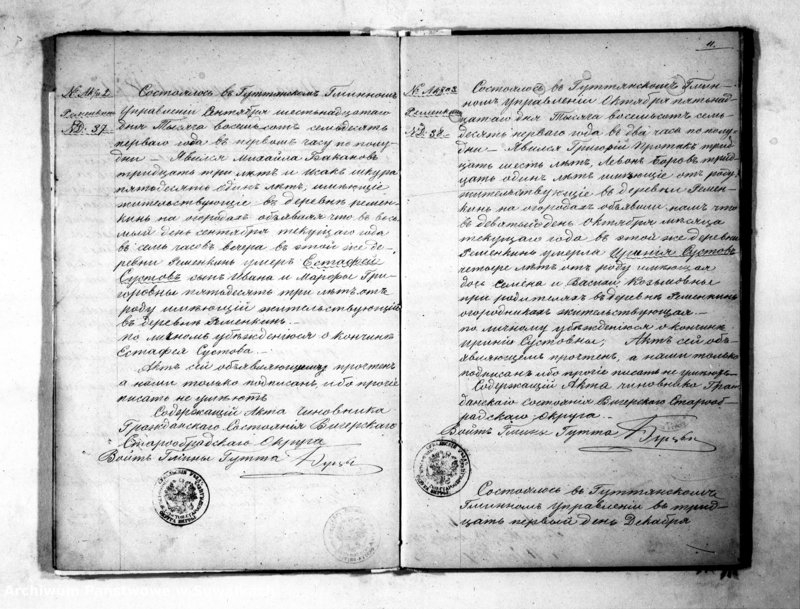 Состоялось въ Гуттянскомъ Гминномъ
Управленіи Сентября шестьнадцатаго
дня Тысяча восемьсотъ семьдесятъ
перваго года въ первомъ часу по полу-
дни — Явился Михайла Бакановъ
тридцать три лѣтъ и Исакъ Шкура
пятьдесятъ одинъ лѣтъ, имеющіе
жительствующіе въ деревнѣ Ремен-
кинь на огородахъ объявили что въ вось-
мый день сентября текущаго года
въ семь часовъ вечера въ этой же де-
ревни Ременкинь умеръ Естафей
Сустовъ сынъ Ивана и Марфы Гри-
горовны пятьдесятъ три лѣтъ отъ
роду имеющій жительствующій
въ деревни Ременкинь.
по личномъ убѣжденіюся о кончинѣ
Естафея Сустова.
Актъ сей объявляющимъ прочтенъ
а нами только подписанъ, ибо прочіе
писать не умеютъ
Содержащій Акта чиновника
Гражданскаго Состоянія Вигерскаго
Старообрядскаго Округа
Войтъ Гмины Гутта
11.
Состоялось въ Гуттянскомъ Гмин-
номъ управленіи Октября пятьнад-
цатаго дня Тысяча восемьсотъ семь-
десятъ перваго года въ два часа по полу-
дни — Явился Григорій трид-
цать шесть лѣтъ, Левонъ Егоровъ трид-
цать одинъ лѣтъ имеющіе отъ роду
жительствующіе въ деревни Ремен-
кинь на огородахъ объявили намъ что
въ девятый день Октября мѣсяца
текущаго года въ этой же деревни
Ременкинь умерла Иринія Сустовъ
четыре лѣтъ отъ роду имеющая
дочь Семена и Козьмовны
при родителяхъ въ деревнѣ Ременкинь
огородникахъ жительствующая.
по личному убѣжденіюся о кончинѣ
Ириніи Сустовны, Актъ сей объ-
являющемъ прочтенъ, а нами только
подписанъ ибо прочіе писать не умеютъ
Содержащій Акта чиновника Граж-
данскаго состоянія Вигерскаго Старооб-
рядскаго Округа.
Войтъ Гмины Гутта
Состоялось въ Гуттянскомъ
Гминномъ управленіи въ трид-
цать первый день Декабря
Archiwum Państwowe w Suwałkach